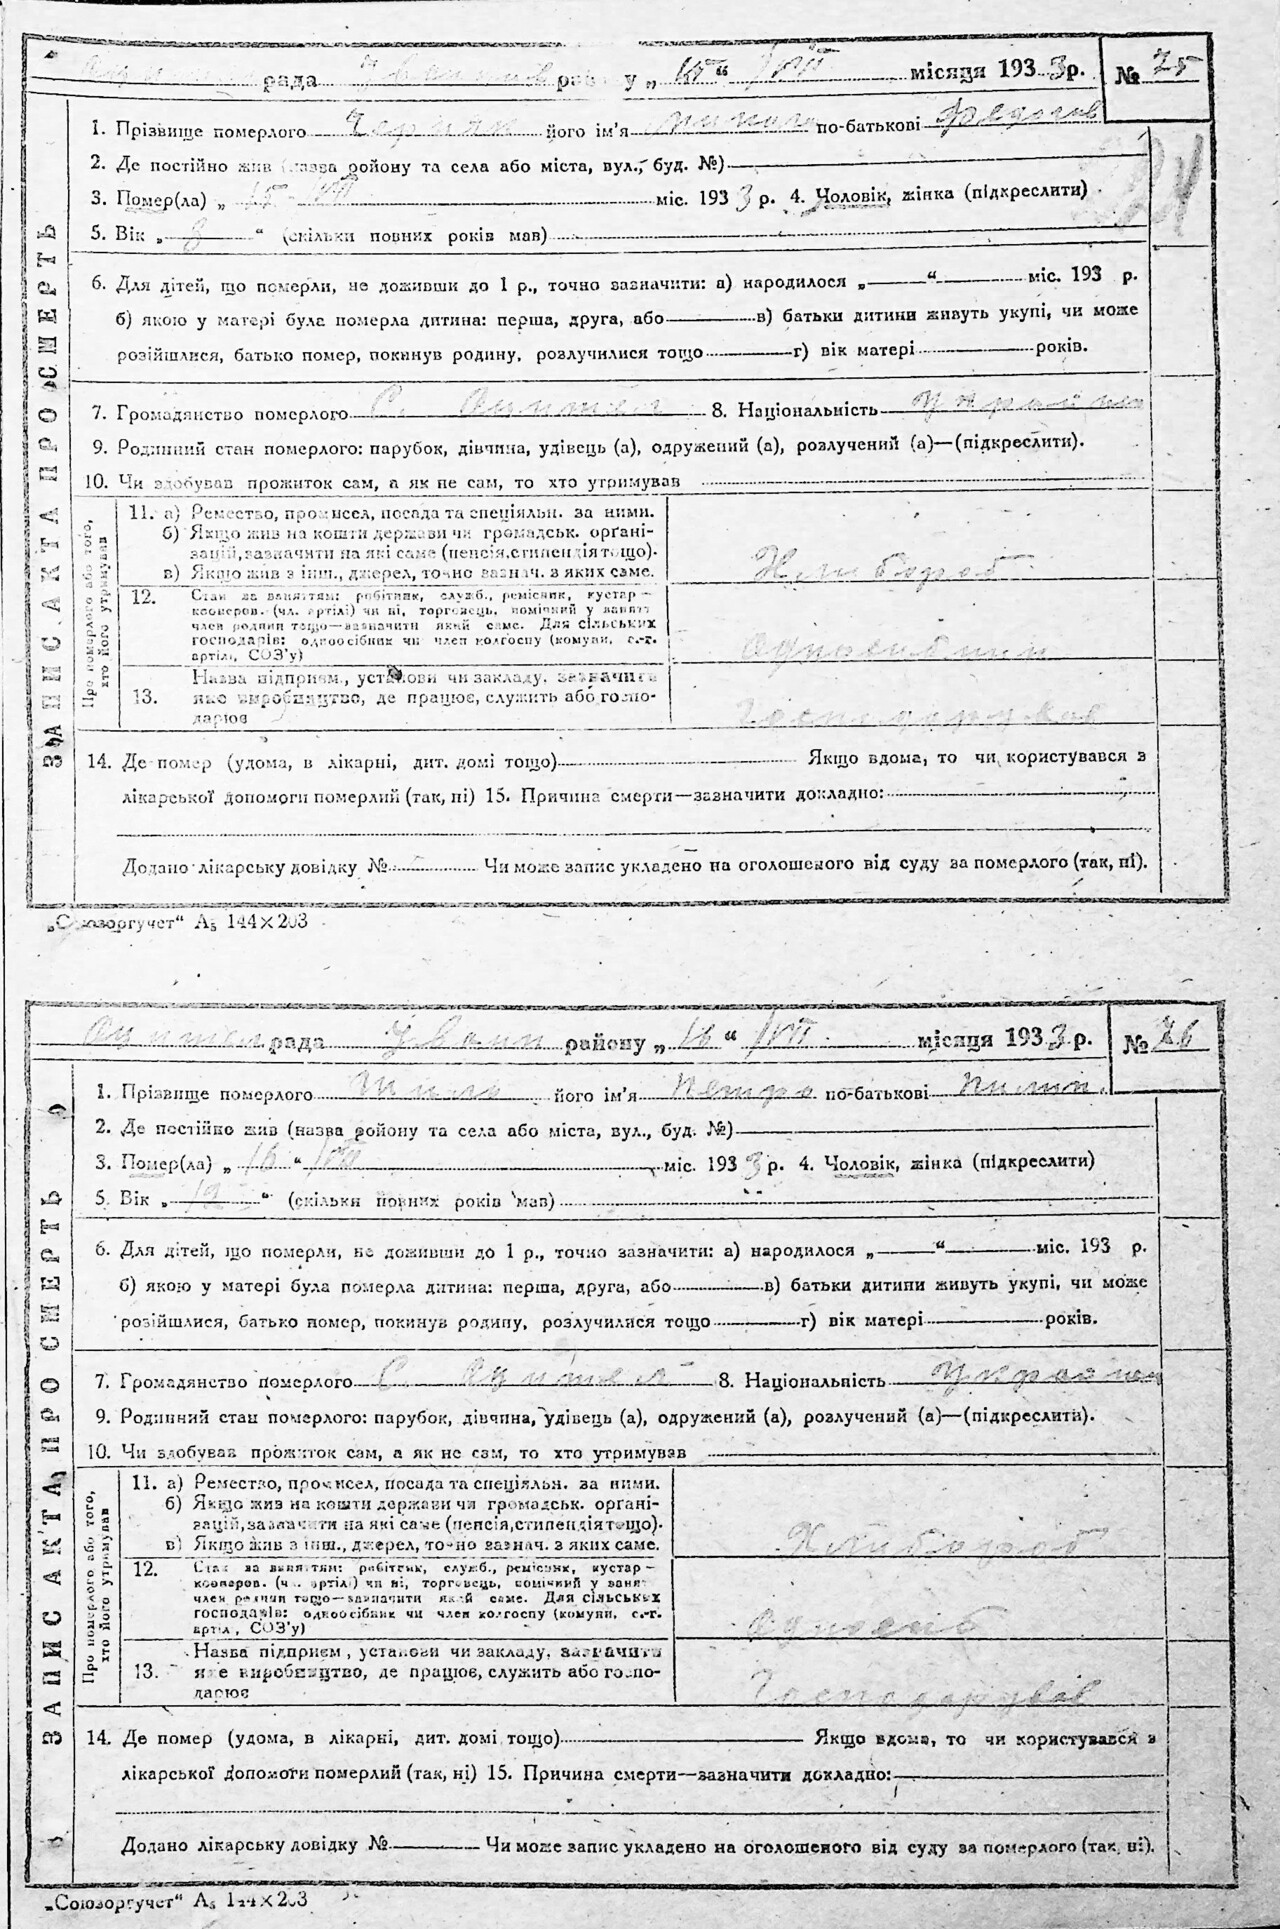 рада району „ 15 “ VII місяця 1933 р. № 25
1. Прізвище померлого Черняк його ім'я по-батькові Федосов
2. Де постійно жив (назва району та села або міста, вул., буд. №)
3. Помер(ла) „ 15 VII міс. 1933 р. 4. Чоловік, жінка (підкреслити)
5. Вік „ 8 “ (скільки повних років мав)
6. Для дітей, що померли, не доживши до 1 р., точно зазначити: а) народилося „ “ міс. 193 р.
б) якою у матері була померла дитина: перша, друга, або в) батьки дитини живуть укупі, чи може
розійшлися, батько помер, покинув родину, розлучилися тощо г) вік матері років.
7. Громадянство померлого С. 8. Національність Україн
9. Родинний стан померлого: парубок, дівчина, удівець (а), одружений (а), розлучений (а)—(підкреслити).
10. Чи здобував прожиток сам, а як не сам, то хто утримував
ЗАПИС АКТА ПРО СМЕРТЬ
Про померлого або того, хто його утримував
11. а) Ремество, промисел, посада та спеціяльн. за ними.
б) Якщо жив на кошти держави чи громадськ. орґані-
зацій, зазначити на які саме (пенсія, стипендія тощо).
в) Якщо жив з інш., джерел, точно зазнач. з яких саме.
Хлибороб
12. Стан за заняттям: робітник, служб., ремісник, кустар—
кооперов. (чл. артілі) чи ні, торговець, помічний у занят
член родини тощо—зазначити який саме. Для сільських
господарів: одноосібник чи член колгоспу (комуни, с.-г.
артілі, СОЗ'у)
13. Назва підприєм., установи чи закладу, зазначити
яке виробництво, де працює, служить або госпо-
дарює
14. Де помер (удома, в лікарні, дит. домі тощо) Якщо вдома, то чи користувався з
лікарської допомоги померлий (так, ні) 15. Причина смерти—зазначити докладно:
Додано лікарську довідку № Чи може запис укладено на оголошеного від суду за померлого (так, ні).
„Союзоргучет“ А₅ 144×203
рада району „ 16 “ VII місяця 1933 р. № 26
1. Прізвище померлого Шило його ім'я Петро по-батькові Пилип.
2. Де постійно жив (назва району та села або міста, вул., буд. №)
3. Помер(ла) „ 16 “ VII міс. 1933 р. 4. Чоловік, жінка (підкреслити)
5. Вік „ 12 “ (скільки повних років мав)
6. Для дітей, що померли, не доживши до 1 р., точно зазначити: а) народилося „ “ міс. 193 р.
б) якою у матері була померла дитина: перша, друга, або в) батьки дитини живуть укупі, чи може
розійшлися, батько помер, покинув родину, розлучилися тощо г) вік матері років.
7. Громадянство померлого С. 8. Національність Україн
9. Родинний стан померлого: парубок, дівчина, удівець (а), одружений (а), розлучений (а)—(підкреслити).
10. Чи здобував прожиток сам, а як не сам, то хто утримував
ЗАПИС АКТА ПРО СМЕРТЬ
Про померлого або того, хто його утримував
11. а) Ремество, промисел, посада та спеціяльн. за ними.
б) Якщо жив на кошти держави чи громадськ. орґані-
зацій, зазначити на які саме (пенсія, стипендія тощо).
в) Якщо жив з інш., джерел, точно зазнач. з яких саме.
Хлибороб
12. Стан за заняттям: робітник, служб., ремісник, кустар—
кооперов. (чл. артілі) чи ні, торговець, помічний у занят
член родини тощо—зазначити який саме. Для сільських
господарів: одноосібник чи член колгоспу (комуни, с.-г.
артіл, СОЗ'у)
Одноосіб
13. Назва підприєм, установи чи закладу, зазначити
яке виробництво, де працює, служить або госпо-
дарює
Господарував
14. Де помер (удома, в лікарні, дит. домі тощо) Якщо вдома, то чи користувався з
лікарської допомоги померлий (так, ні) 15. Причина смерти—зазначити докладно:
Додано лікарську довідку № Чи може запис укладено на оголошеного від суду за померлого (так, ні).
„Союзоргучет“ А₅ 144×203